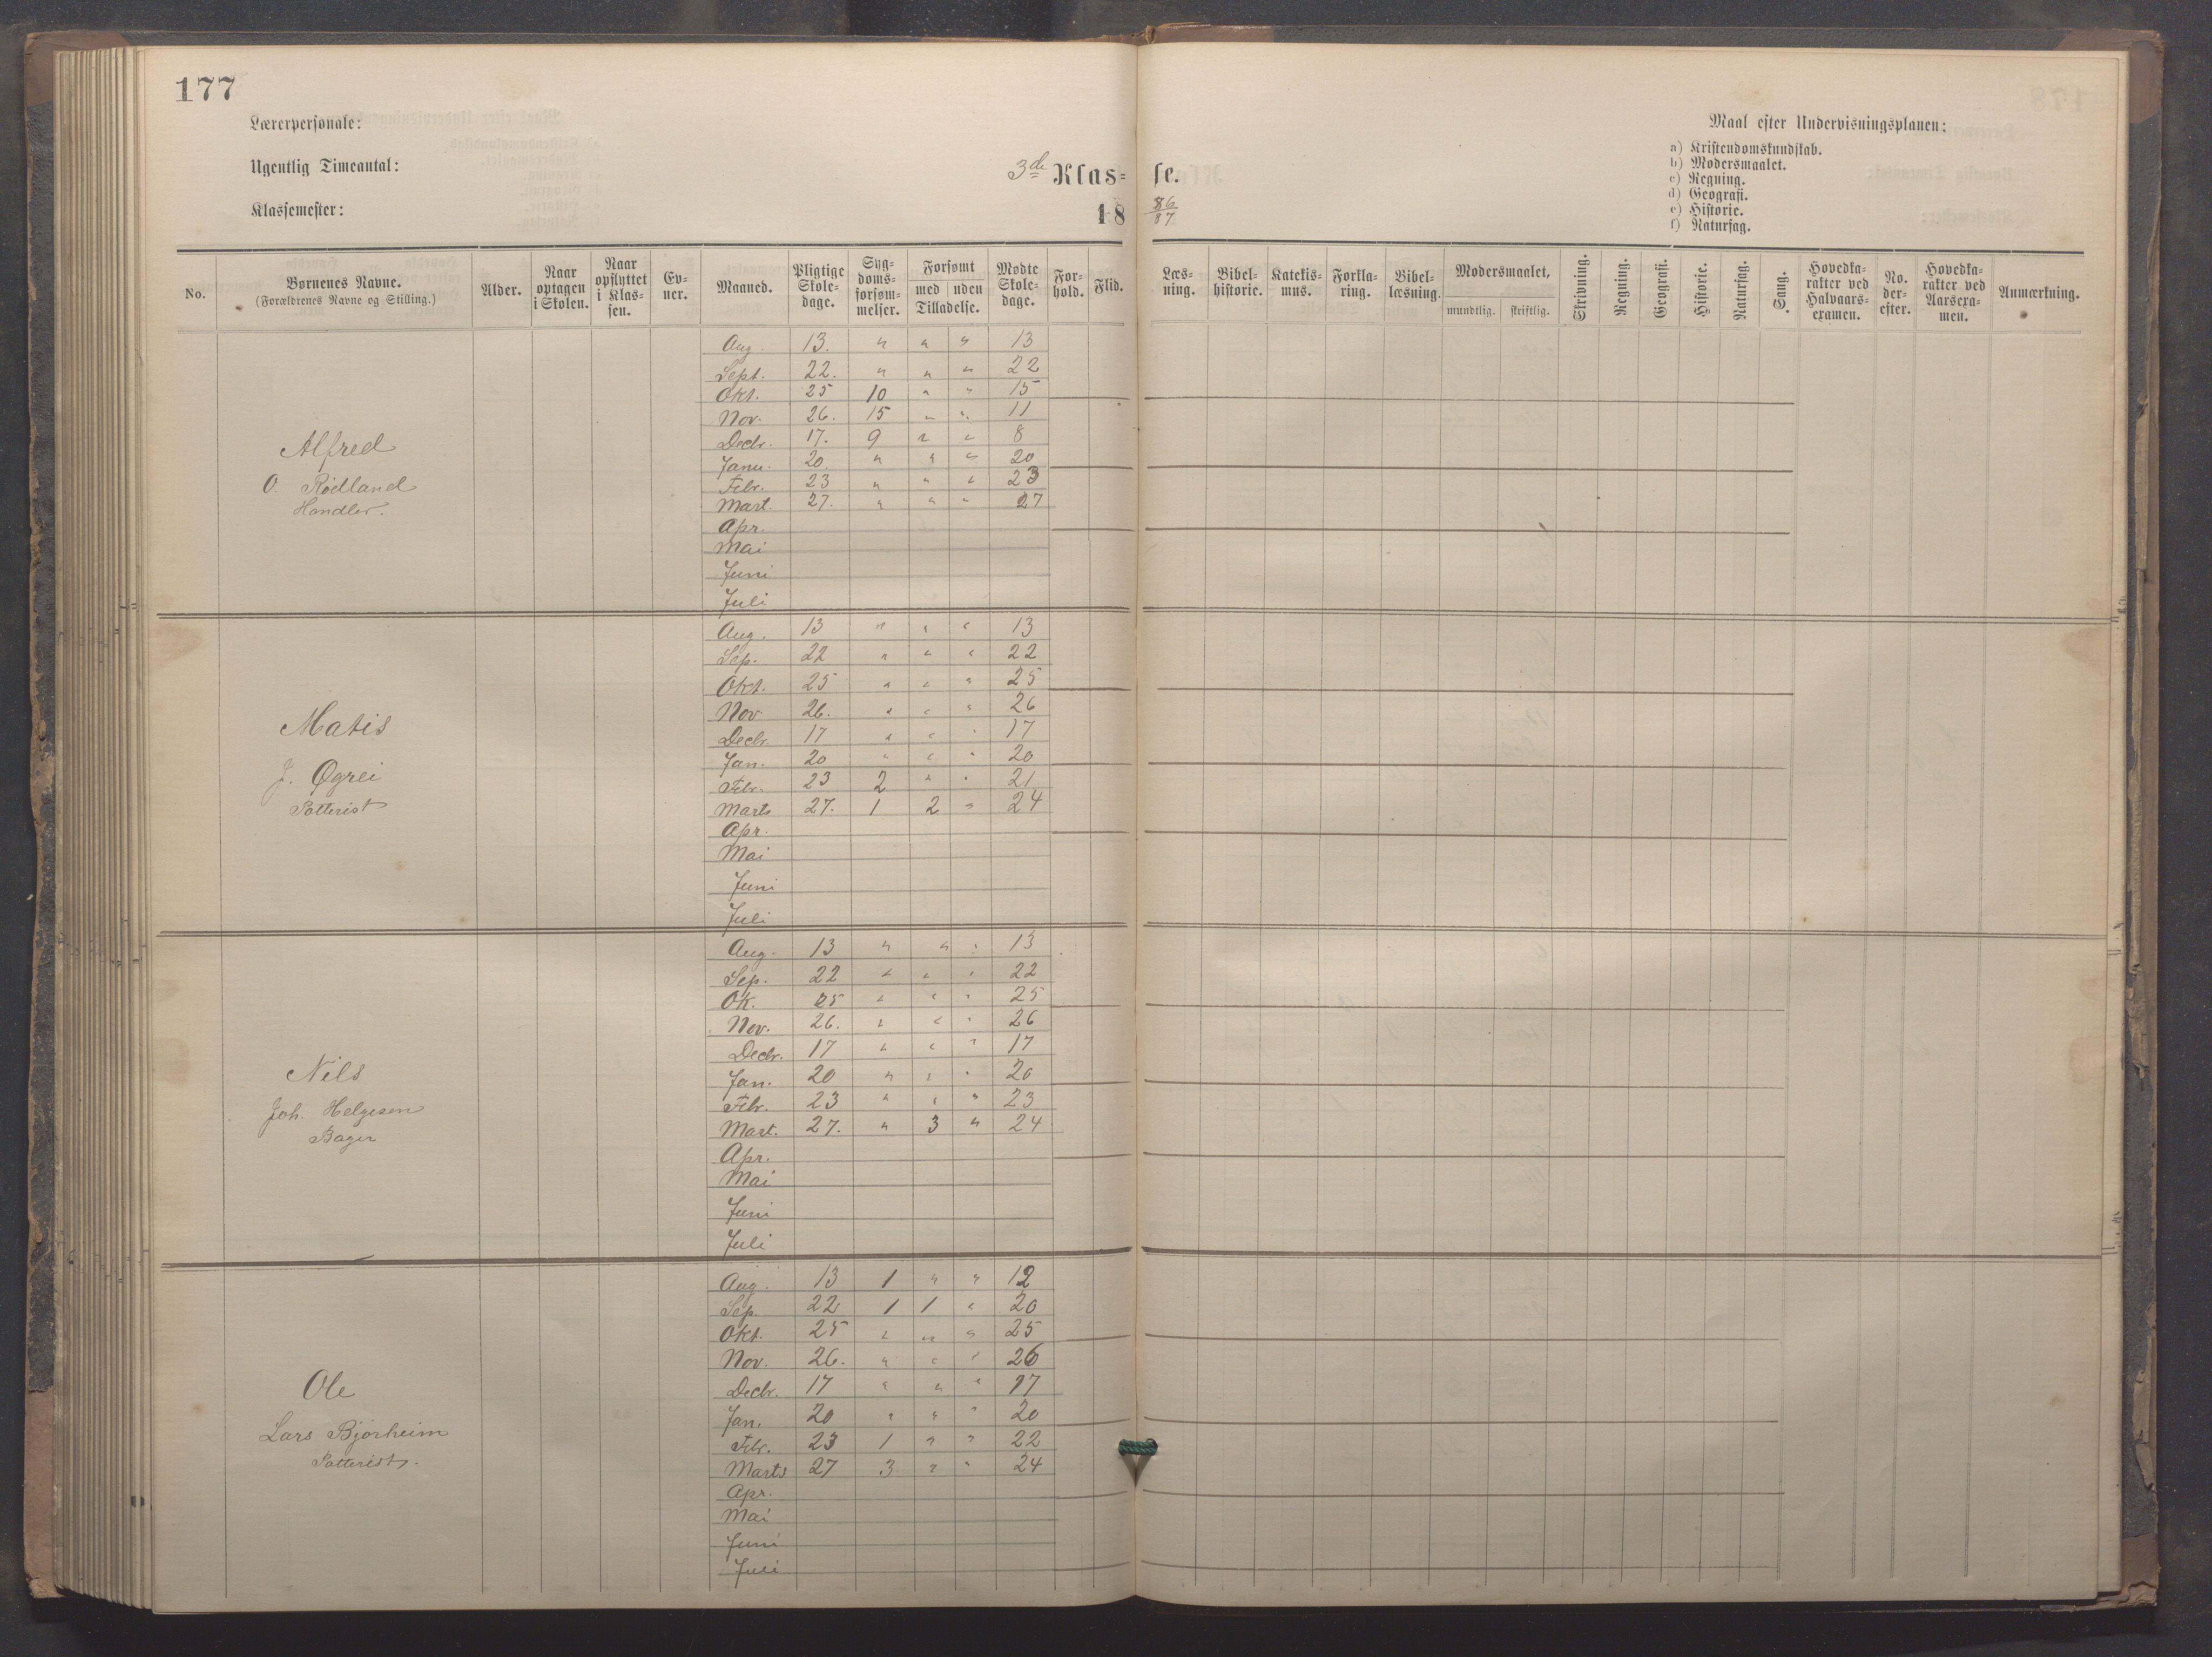 177
Lærerpersonale:
Ugentlig Timeantal:
Klassemester:
3de Klas= se.
18 86/87
Maal efter Undervisningsplanen:
a) Kristendomskundskab.
b) Modersmaalet.
c) Regning.
d) Geografi.
e) Historie.
f) Naturfag.
No. Børnenes Navne. (Forældrenes Navne og Stilling.) Alder. Naar optagen i Skolen. Naar opflyttet i Klas=sen. Ev=ner. Maaned. Pligtige Skole=dage. Syg=doms=forsøm=melser. Forsømt med uden Tilladelse. Mødte Skole=dage. For=hold. Flid. Læs=ning. Bibel=historie. Katekis=mus. Forkla=ring. Bibel=læsning. Modersmaalet, mundtlig. skriftlig. Skrivning. Regning. Geografi. Historie. Naturfag. Sang. Hovedka=rakter ved Halvaars=examen. No. der=efter. Hovedka=rakter ved Aarsexa=men. Anmærkning.
Alfred
O. Rødland
Handler.
Aug. 13. " " " 13
Sept. 22. " " " 22
Okt. 25 10 " " 15
Nov. 26. 15 " " 11
Decbr. 17. 9 " " 8
Janu. 20. " " " 20
Febr. 23 " " " 23
Mart. 27. " " " 27
Apr.
Mai
Juni
Juli
Matis
J. Øgrei
Potterist
Aug. 13 " " " 13
Sep. 22 " " " 22
Okt. 25 " " " 25
Nov. 26. " " " 26
Decbr. 17 " " " 17
Jan. 20 " " " 20
Febr. 23 2 " " 21
Marts 27. 1 2 " 24
Apr.
Mai
Juni
Juli
Nils
Joh. Helgesen
Bager
Aug. 13 " " " 13
Sep. 22 " " " 22
Ok. 25 " " " 25
Nov. 26. " " " 26
Decbr. 17 " " " 17
Jan. 20 " " " 20
Febr. 23 " " " 23
Mart. 27. " 3 " 24
Apr.
Mai
Juni
Juli
Ole
Lars Bjørheim
Potterist.
Aug. 13 1 " " 12
Sep. 22 1 1 " 20
Okt. 25 " " " 25
Nov. 26. " " " 26
Decbr. 17 " " " 17
Jan. 20 " " " 20
Febr. 23 1 " " 22
Marts 27 3 " " 24
Apr.
Mai
Juni
Juli